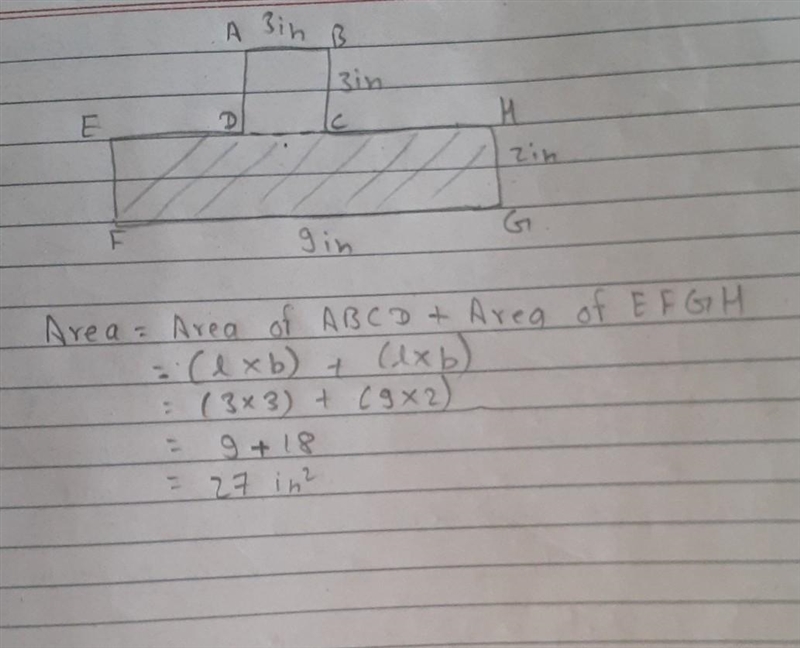 A 3in B
3in
E D C H
2in
F 9in G
Area = Area of ABCD + Area of EFGH
= (l×b) + (l×b)
= (3×3) + (9×2)
= 9+18
= 27 in²